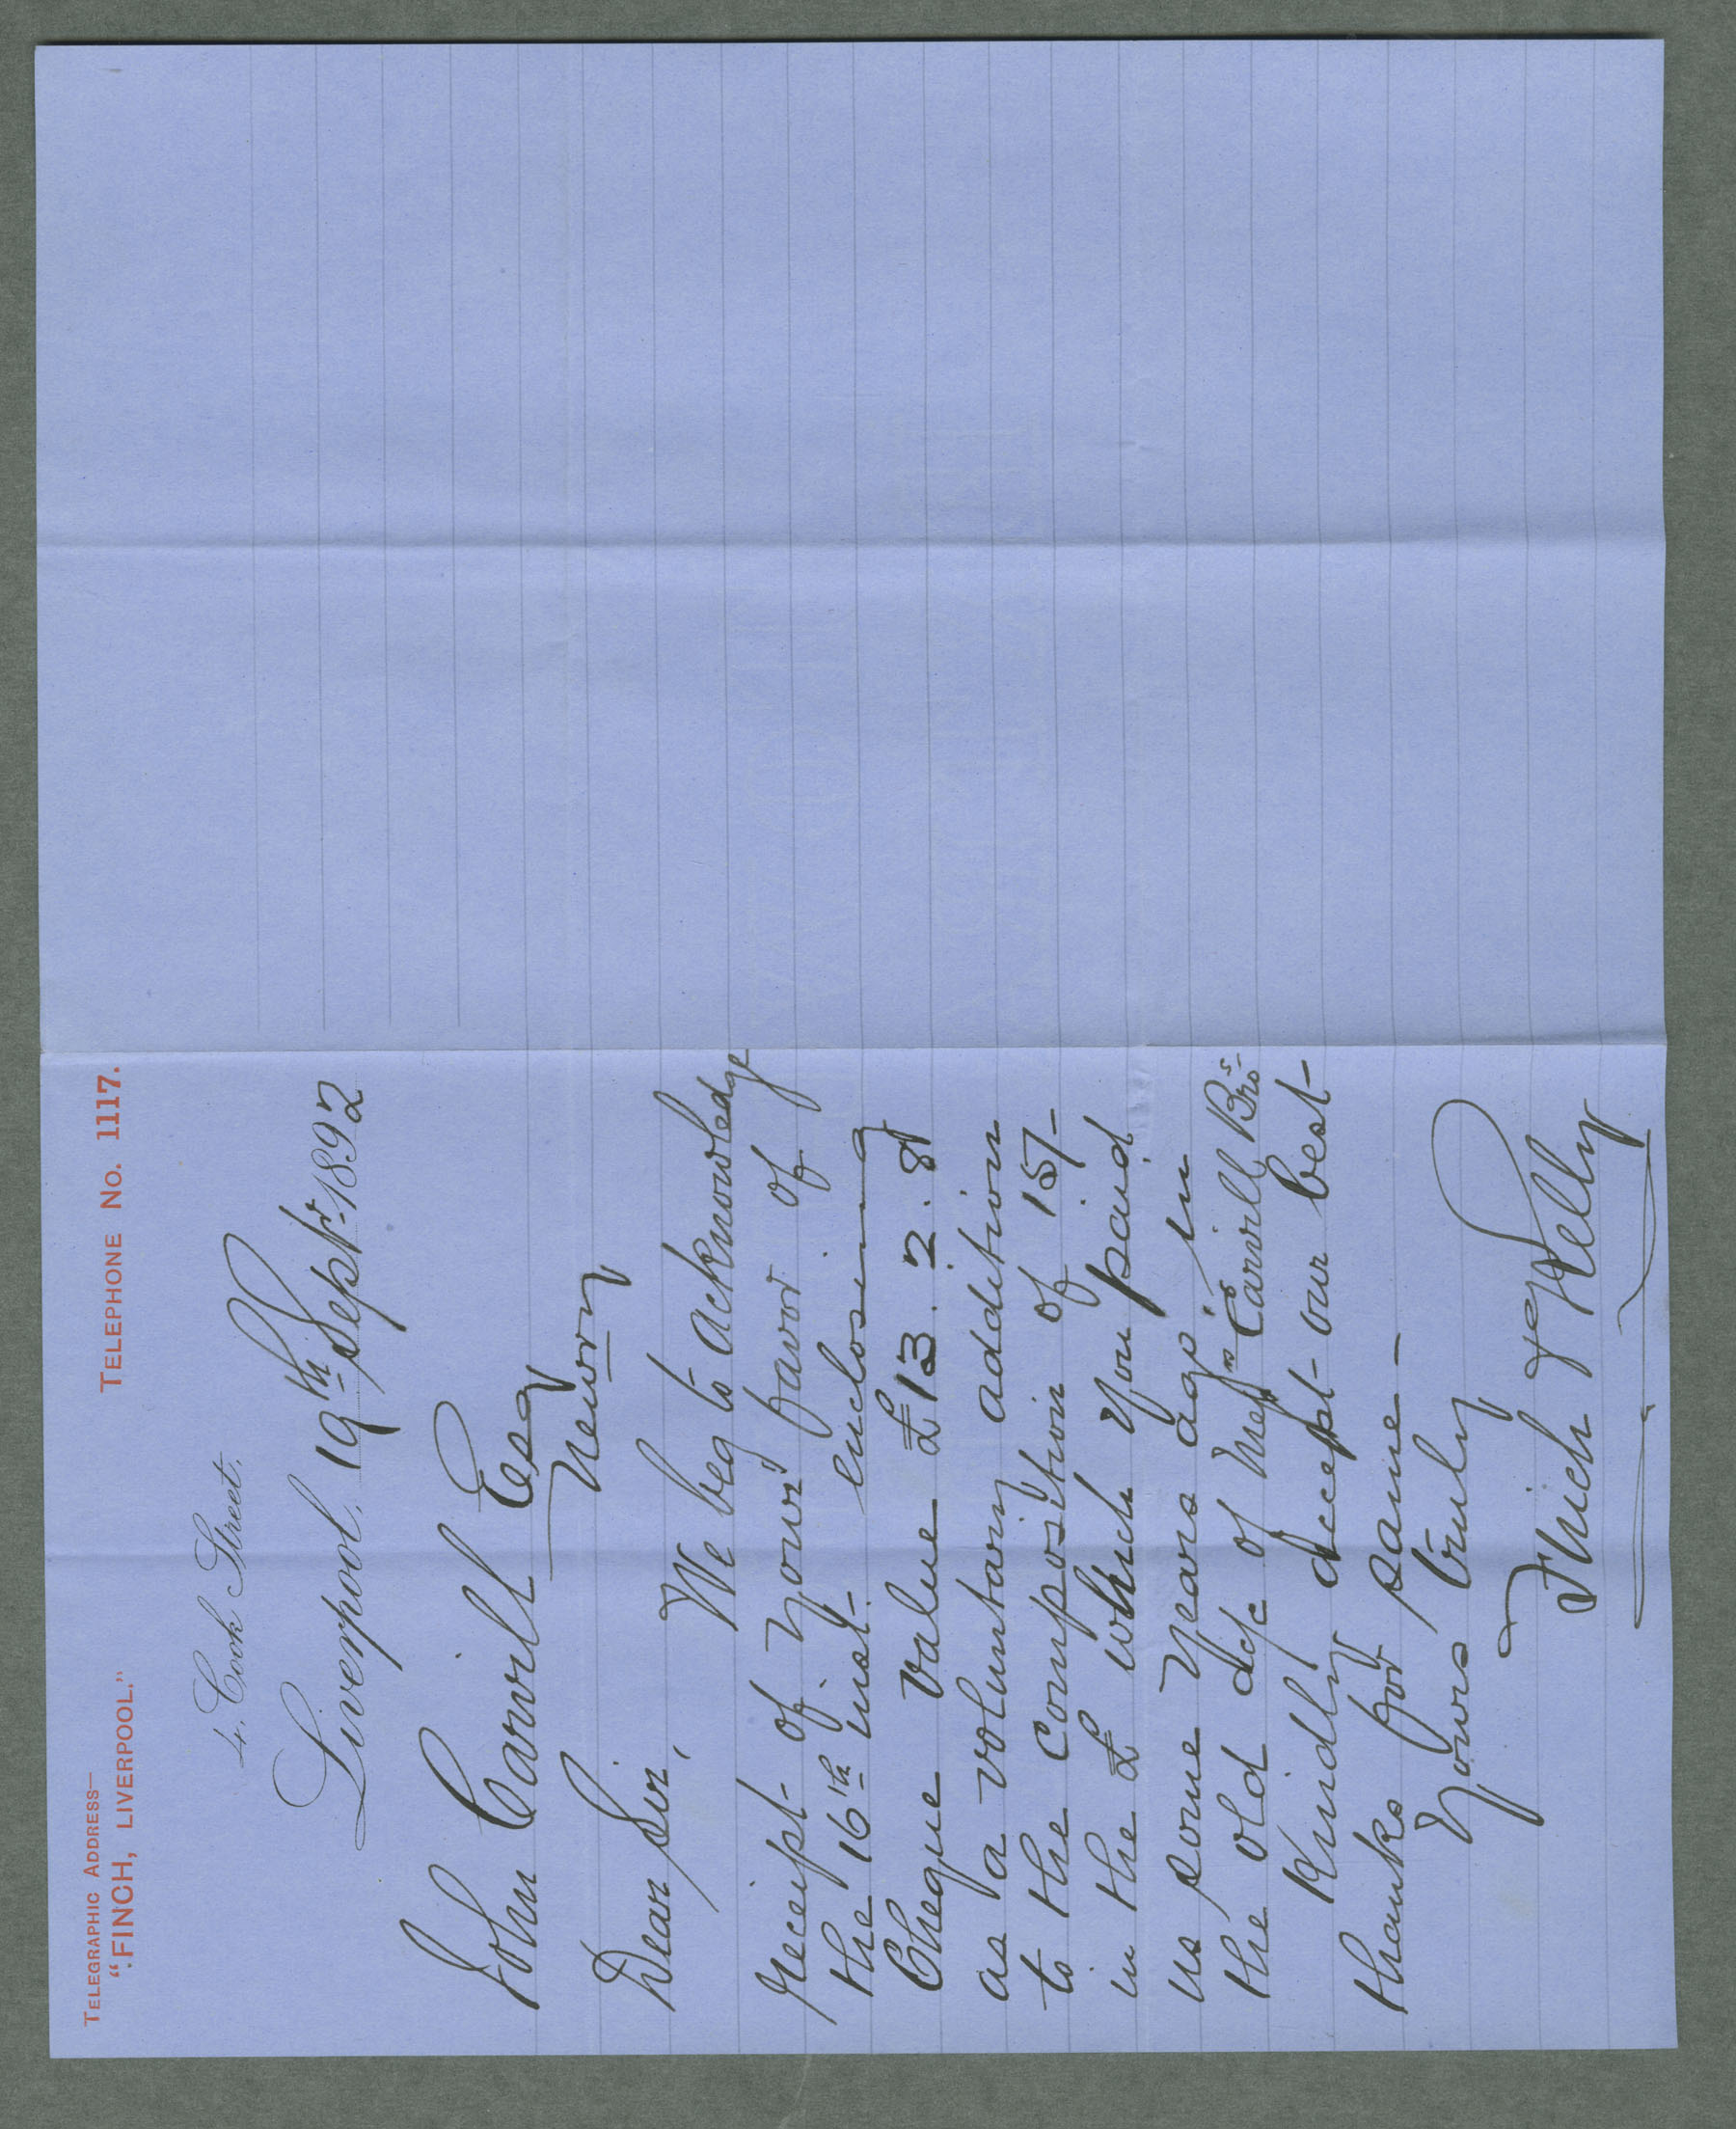 TELEGRAPHIC ADDRESS—
"FINCH, LIVERPOOL."
TELEPHONE No. 1117.
4, Cook Street,
Liverpool, 19th Septr. 1892
John Carvill Esq
Newry
Dear Sir,
We beg to acknowledge
receipt of your favor of
the 16th inst. enclosing
Cheque value £13.2.8
as a voluntary addition
to the composition of 15/-
in the £ which you paid
us some years ago in
the old a/c of Messrs Carvill Bros.
Kindly accept our best
thanks for same—
Yours truly
Finch & Kelly